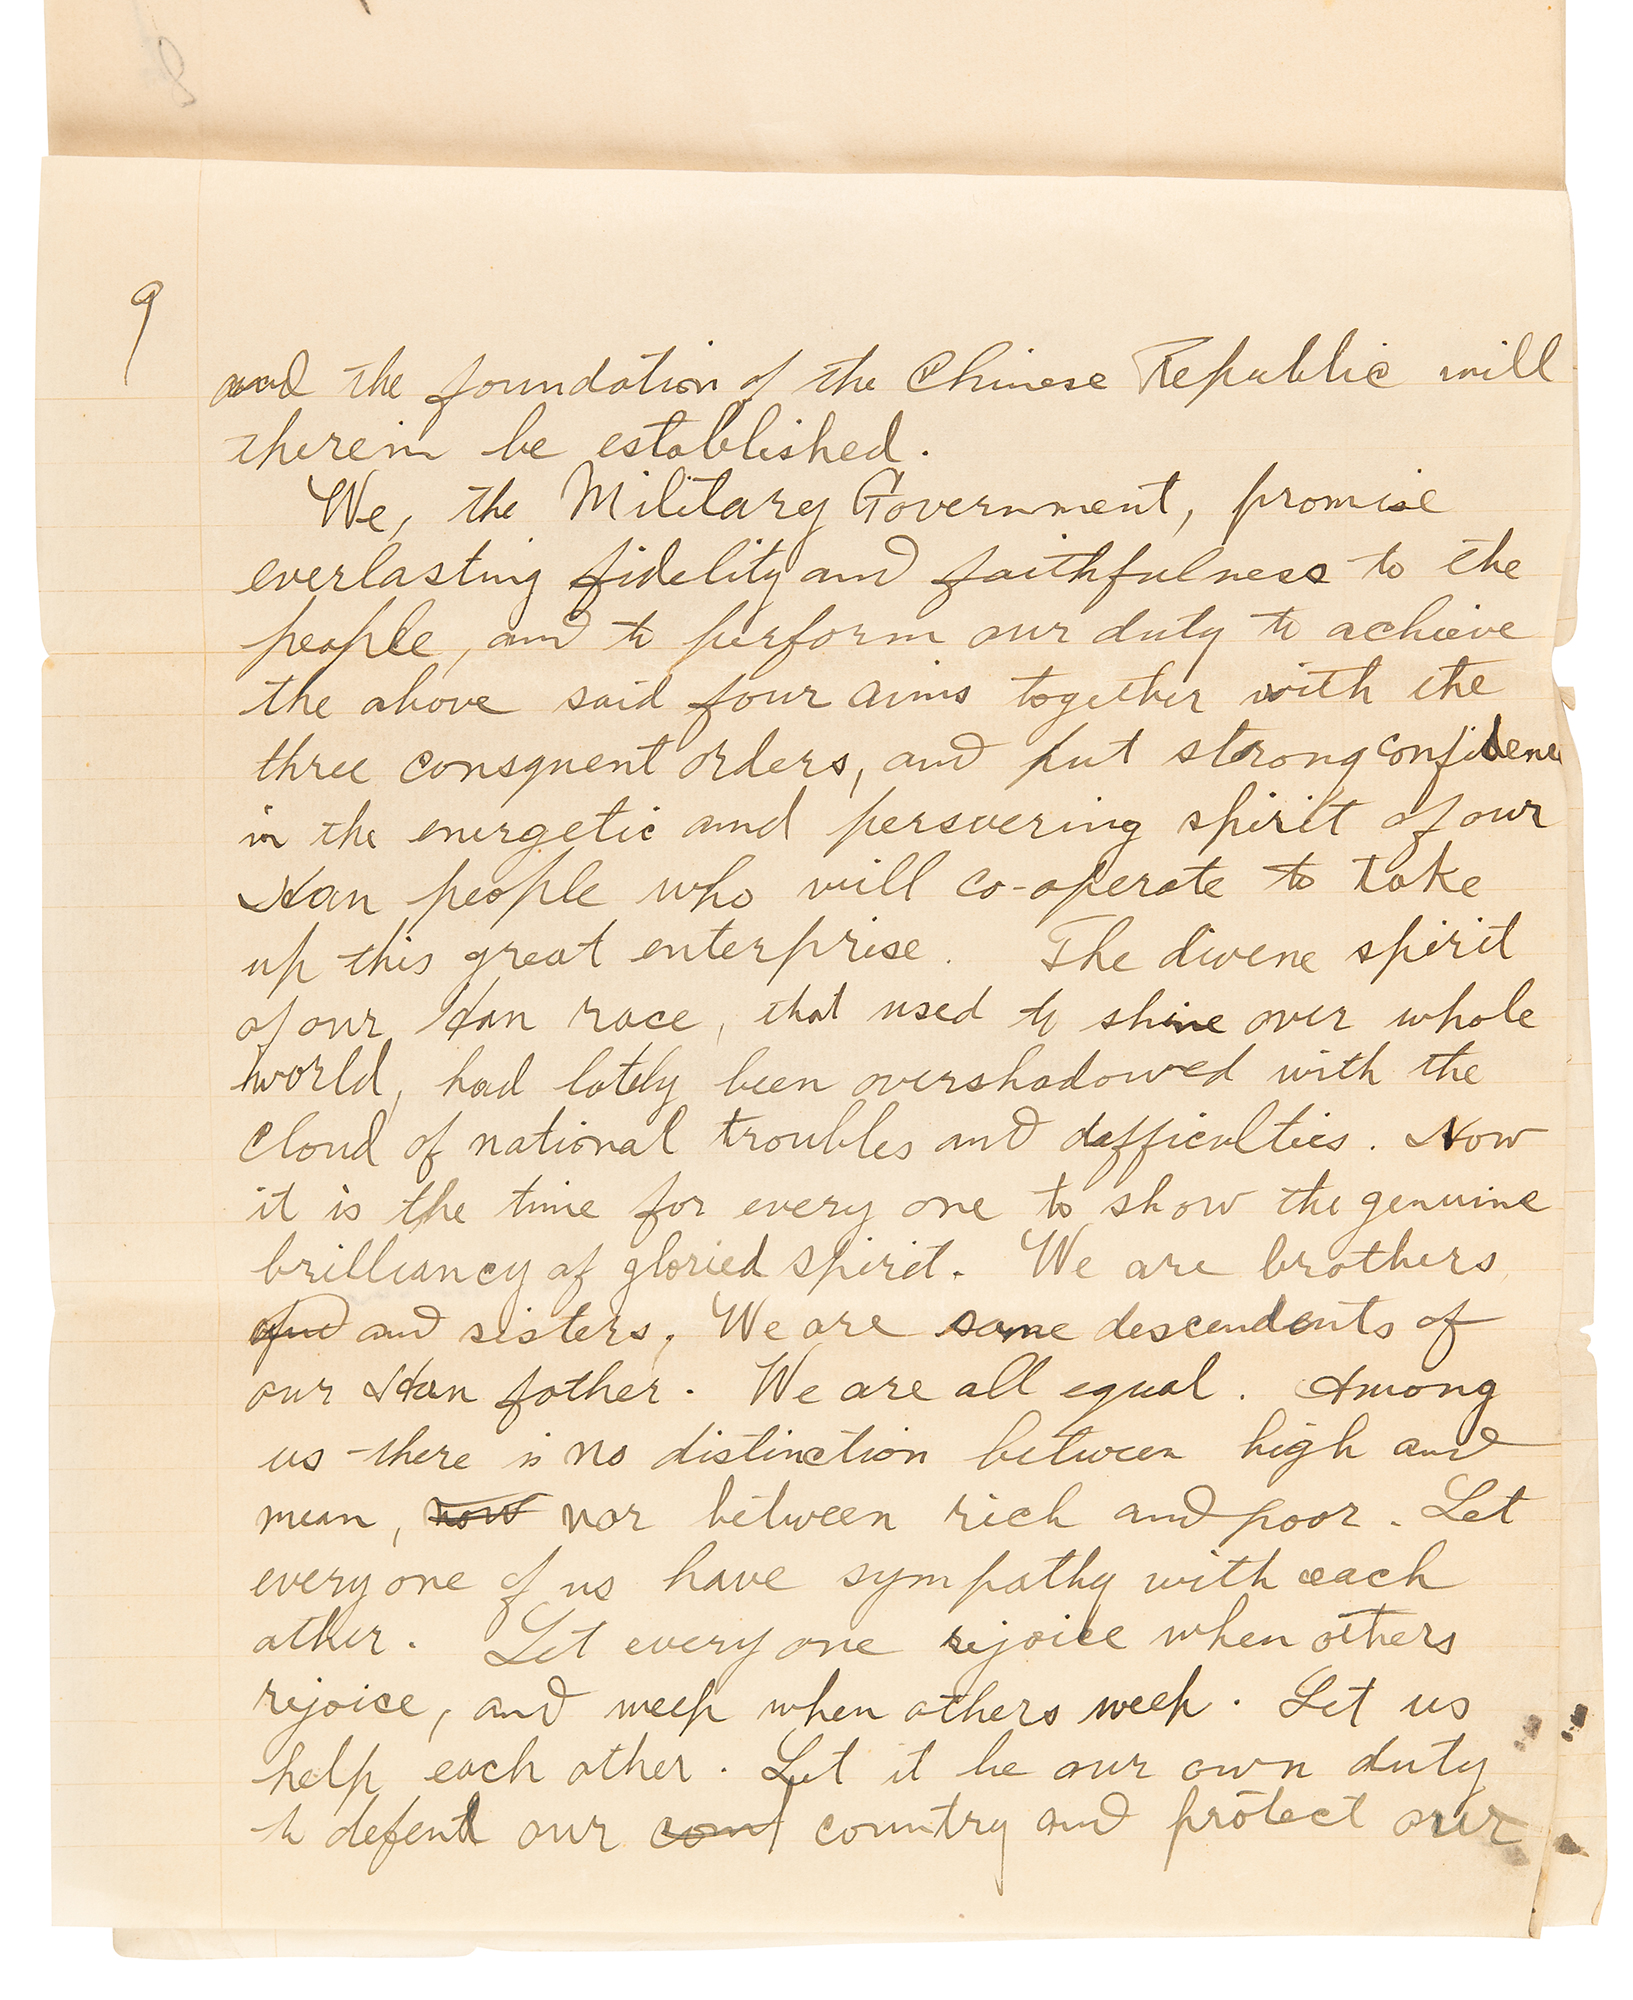 9
and the foundation of the Chinese Republic will
therein be established.
We, the Military Government, promise
everlasting fidelity and faithfulness to the
people, and to perform our duty to achieve
the above said four aims together with the
three consquent orders, and put strong confidence
in the energetic and persvering spirit of our
Han people who will co-operate to take
up this great enterprise. The divene spirit
of our Han race, that used to shine over whole
world, had lately been overshadowed with the
cloud of national troubles and difficulties. Now
it is the time for every one to show the genuine
brilliancy of gloried spirit. We are brothers
and sisters, We are same descendents of
our Han father. We are all equal. Among
us there is no distinction between high and
mean, now nor between rich and poor. Let
everyone of us have sympathy with each
other. Let everyone rejoice when others
rejoice, and weep when others weep. Let us
help each other. Let it be our own duty
to defend our count country and protect our